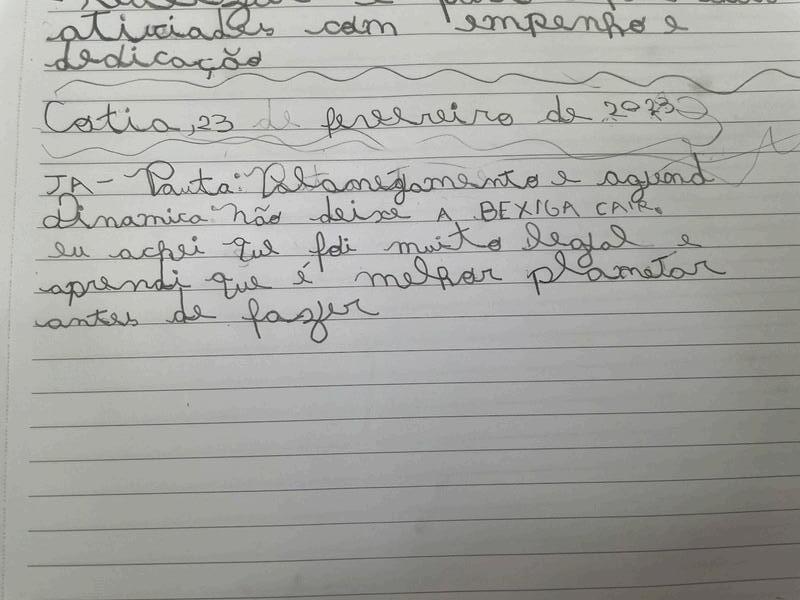 atividades com empenho e
dedicação
Cotia, 23 de fevereiro de 2023
JA - Pauta: e
Dinamica não deixe A BEXIGA CAIR.
eu achei que foi muito legal e
aprendi que é melhor planetar
antes de fazer